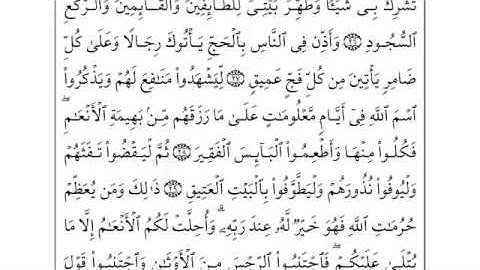 تُشْرِكْ بِى شَيْـًٔا وَطَهِّرْ بَيْتِىَ لِلطَّآئِفِينَ وَٱلْقَآئِمِينَ وَٱلرُّكَّعِ
ٱلسُّجُودِ ﴿٢٦﴾ وَأَذِّن فِى ٱلنَّاسِ بِٱلْحَجِّ يَأْتُوكَ رِجَالًا وَعَلَىٰ كُلِّ
ضَامِرٍ يَأْتِينَ مِن كُلِّ فَجٍّ عَمِيقٍ ﴿٢٧﴾ لِّيَشْهَدُوا۟ مَنَـٰفِعَ لَهُمْ وَيَذْكُرُوا۟
ٱسْمَ ٱللَّهِ فِىٓ أَيَّامٍ مَّعْلُومَـٰتٍ عَلَىٰ مَا رَزَقَهُم مِّنۢ بَهِيمَةِ ٱلْأَنْعَـٰمِ ۖ
فَكُلُوا۟ مِنْهَا وَأَطْعِمُوا۟ ٱلْبَآئِسَ ٱلْفَقِيرَ ﴿٢٨﴾ ثُمَّ لْيَقْضُوا۟ تَفَثَهُمْ
وَلْيُوفُوا۟ نُذُورَهُمْ وَلْيَطَّوَّفُوا۟ بِٱلْبَيْتِ ٱلْعَتِيقِ ﴿٢٩﴾ ذَٰلِكَ وَمَن يُعَظِّمْ
حُرُمَـٰتِ ٱللَّهِ فَهُوَ خَيْرٌ لَّهُۥ عِندَ رَبِّهِۦ ۗ وَأُحِلَّتْ لَكُمُ ٱلْأَنْعَـٰمُ إِلَّا مَا
يُتْلَىٰ عَلَيْكُمْ ۖ فَٱجْتَنِبُوا۟ ٱلرِّجْسَ مِنَ ٱلْأَوْثَـٰنِ وَٱجْتَنِبُوا۟ قَوْلَ